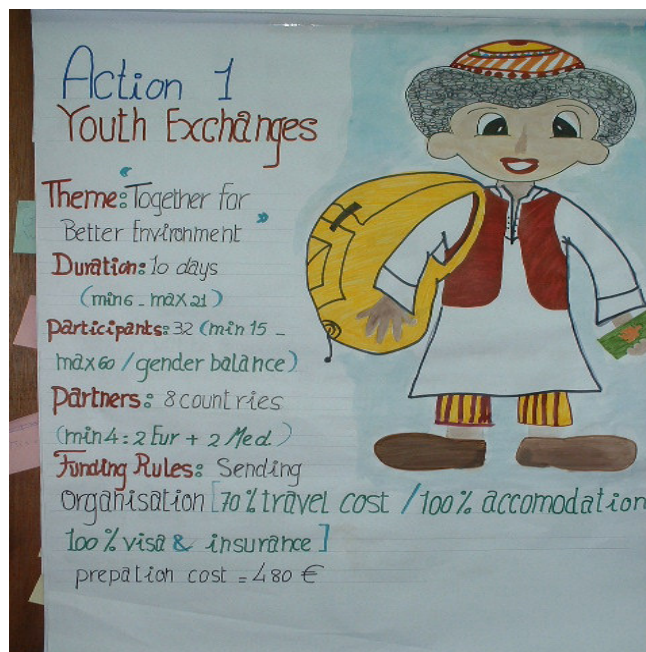 Action 1
Youth Exchanges
Theme: "Together for
Better Environment"
Duration: 10 days
(min 6 - max 21)
Participants: 32 (min 15 -
max 60 / gender balance)
Partners: 8 countries
(min 4: 2 Eur + 2 Med)
Funding Rules: Sending
Organisation [70% travel cost / 100% accomodation
100% visa & insurance]
prepation cost = 480 €